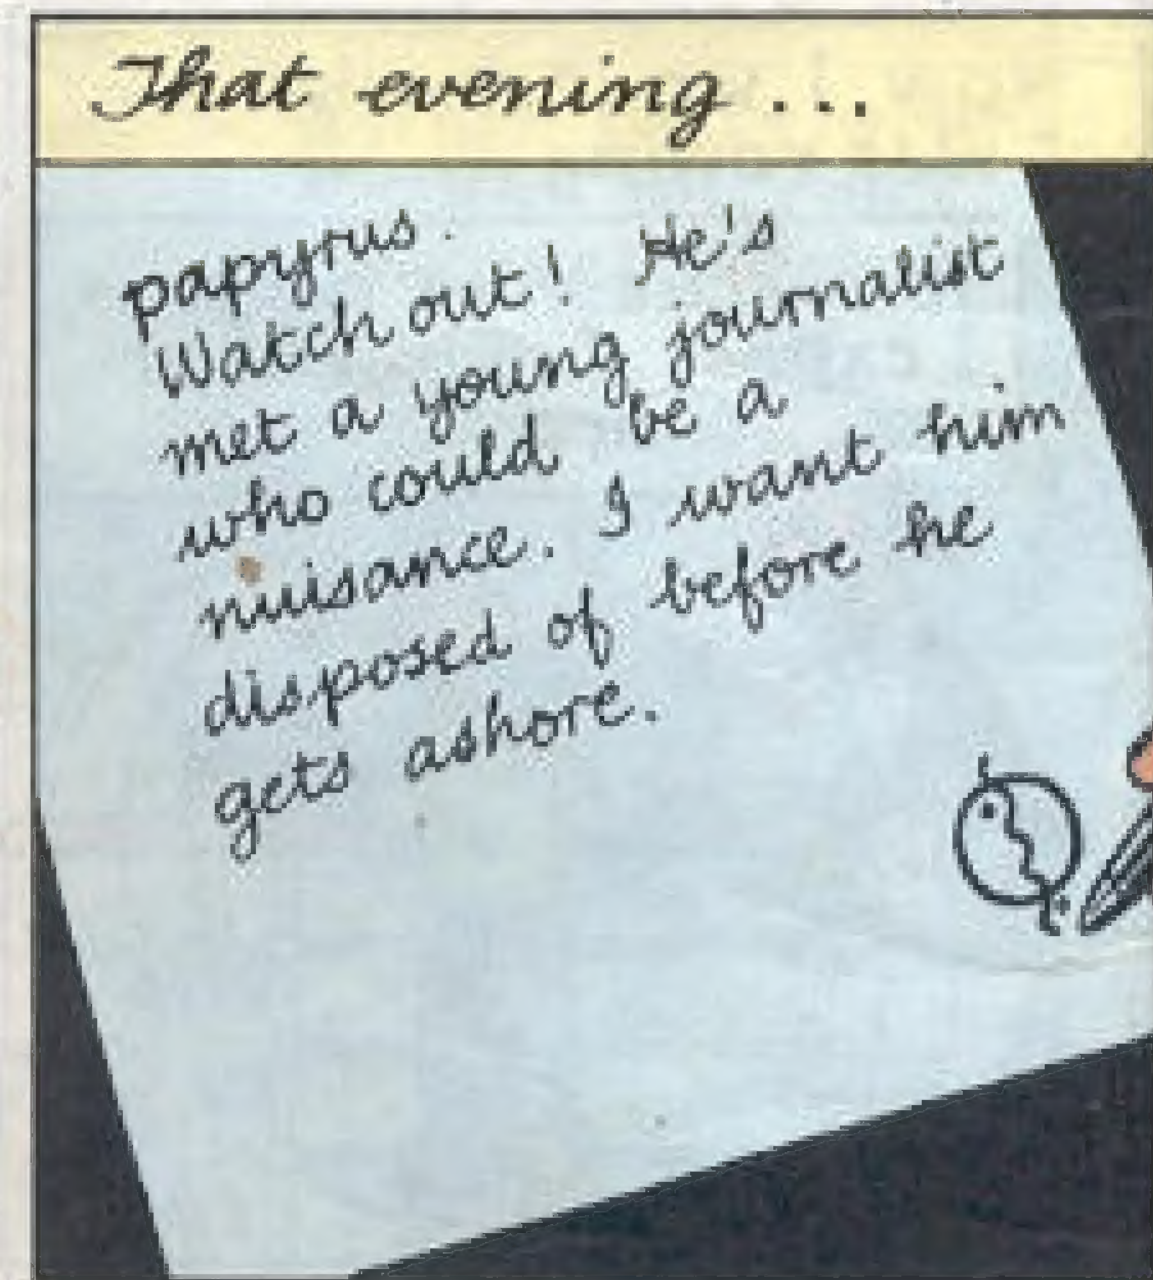 That evening ...
papyrus.
Watch out! He's
met a young journalist
who could be a
nuisance. I want him
disposed of before he
gets ashore.